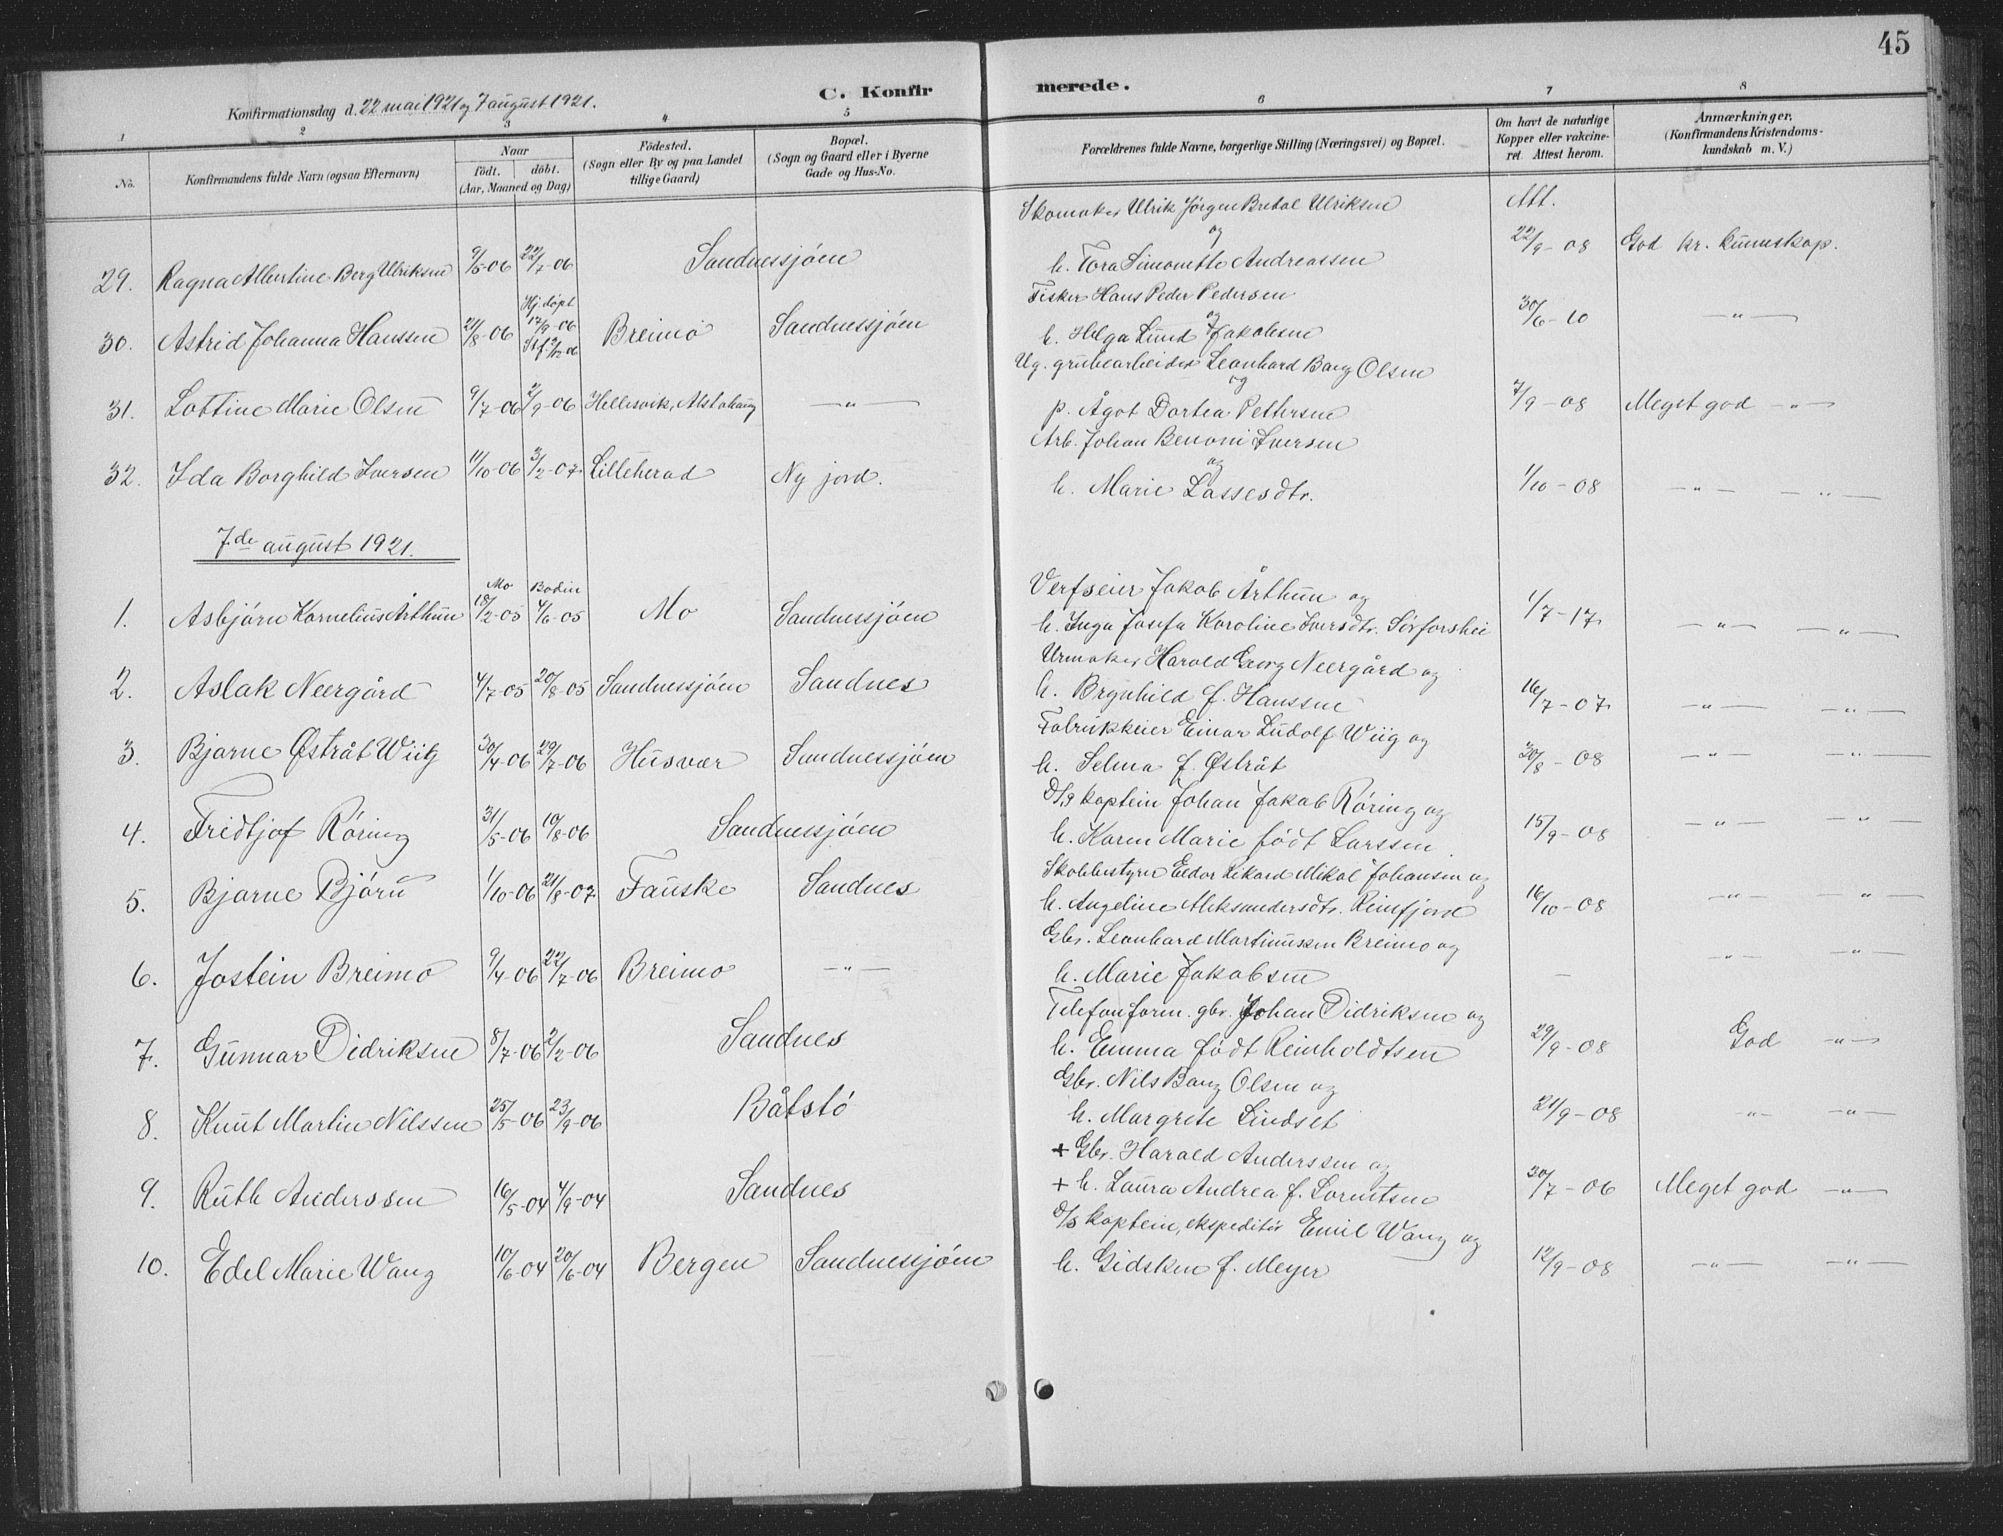 45
C. Konfir
merede.
Konfirmationsdag d. 22 mai 1921 og 7 august 1921.
1 2 3 4 5 6 7 8
No.
Konfirmandens fulde Navn (ogsaa Efternavn)
Naar
födt. döbt.
(Aar, Maaned og Dag)
Födested.
(Sogn eller By og paa Landet
tillige Gaard)
Bopæl.
(Sogn og Gaard eller i Byerne
Gade og Hus-No.
Forældrenes fulde Navne, borgerlige Stilling (Næringsvei) og Bopæl.
Om havt de naturlige
Kopper eller vakcine-
ret. Attest herom.
Anmærkninger.
(Konfirmandens Kristendoms-
kundskab m. V.)
Skomaker Ulrik Jørgen Bretal Ulriksen Att.
og
29. Ragna Albertine Berg Ulriksen 9/5-06 22/7-06 Sandnessjøen h. Tora Simonette Andreassen 22/9-08 God kr. kunnskap.
Fisker Hans Peder Pedersen
Hj. døpt
17/9-06
og
30. Astrid Johanna Hanssen 21/8-06 Stf. 2/12-06 Breimo Sandnessjøen h. Helga Lund Jakobsen 30/6-10 — " —
Ug. grubearbeider Leonhard Bang Olsen
og
31. Lottine Marie Olsen 9/7-06 2/9-06 Hellesvik, Alstahaug — " — p. Ågot Dortea Pettersen 7/9-08 Meget god — " —
Arb. Johan Benoni Iversen
og
32. Ida Borghild Iversen 11/10-06 3/2-07 Lilleherad Ny jord. h. Marie Lassesdtr. 1/10-08 — " — — " —
7de august 1921.
Mo Bodin
Verfseier Jakob Årthun og
1. Asbjørn Kornelius Årthun 18/2-05 4/6-05 Mo Sandnessjøen h. Inga Josefa Karoline Iversdtr. Sørforshei 1/7-17 — " — — " —
Urmaker Harald Georg Neergård og
2. Aslak Neergård 4/7-05 20/8-05 Sandnessjøen Sandnes h. Brynhild f. Hanssen 16/7-07 — " — — " —
Fabrikkeier Einar Ludolf Wiig og
3. Bjarne Østråt Wiig 30/4-06 29/7-06 Husvær Sandnessjøen h. Selma f. Østråt 30/8-08 — " — — " —
D/s kaptein Johan Jakob Røring og
4. Fridtjof Røring 31/5-06 10/8-06 Sandnessjøen h. Karen Marie født Larssen 15/9-08 — " — — " —
Skolebestyrer Eldor Rikard Mikal Johansen og
5. Bjarne Bjøru 1/10-06 21/8-07 Fauske Sandnes h. Angeline Aleksandersdtr. Reinfjord 16/10-08 — " — — " —
Gbr. Leonhard Martinussen Breimo og
6. Jostein Breimo 9/4-06 22/7-06 Breimo — " — h. Marie Jakobsen — — " — — " —
Telefonform. gbr. Johan Didriksen og
7. Gunnar Didriksen 8/7-06 2/12-06 Sandnes h. Emma født Reinholdtsen 29/9-08 God — " —
Gbr. Nils Bang Olsen og
8. Knut Martin Nilssen 25/5-06 23/9-06 Båtstø h. Margrete Lindset 21/9-08 — " — — " —
+ Gbr. Harald Anderssen og
9. Ruth Anderssen 16/5-04 4/9-04 Sandnes + h. Laura Andrea f. Lorentsen 30/7-06 Meget god — " —
D/s kaptein, ekspeditør Emil Wang og
10. Edel Marie Wang 10/6-04 20/6-04 Bergen Sandnessjøen h. Gidsken f. Meyer 12/9-08 — " — — " —